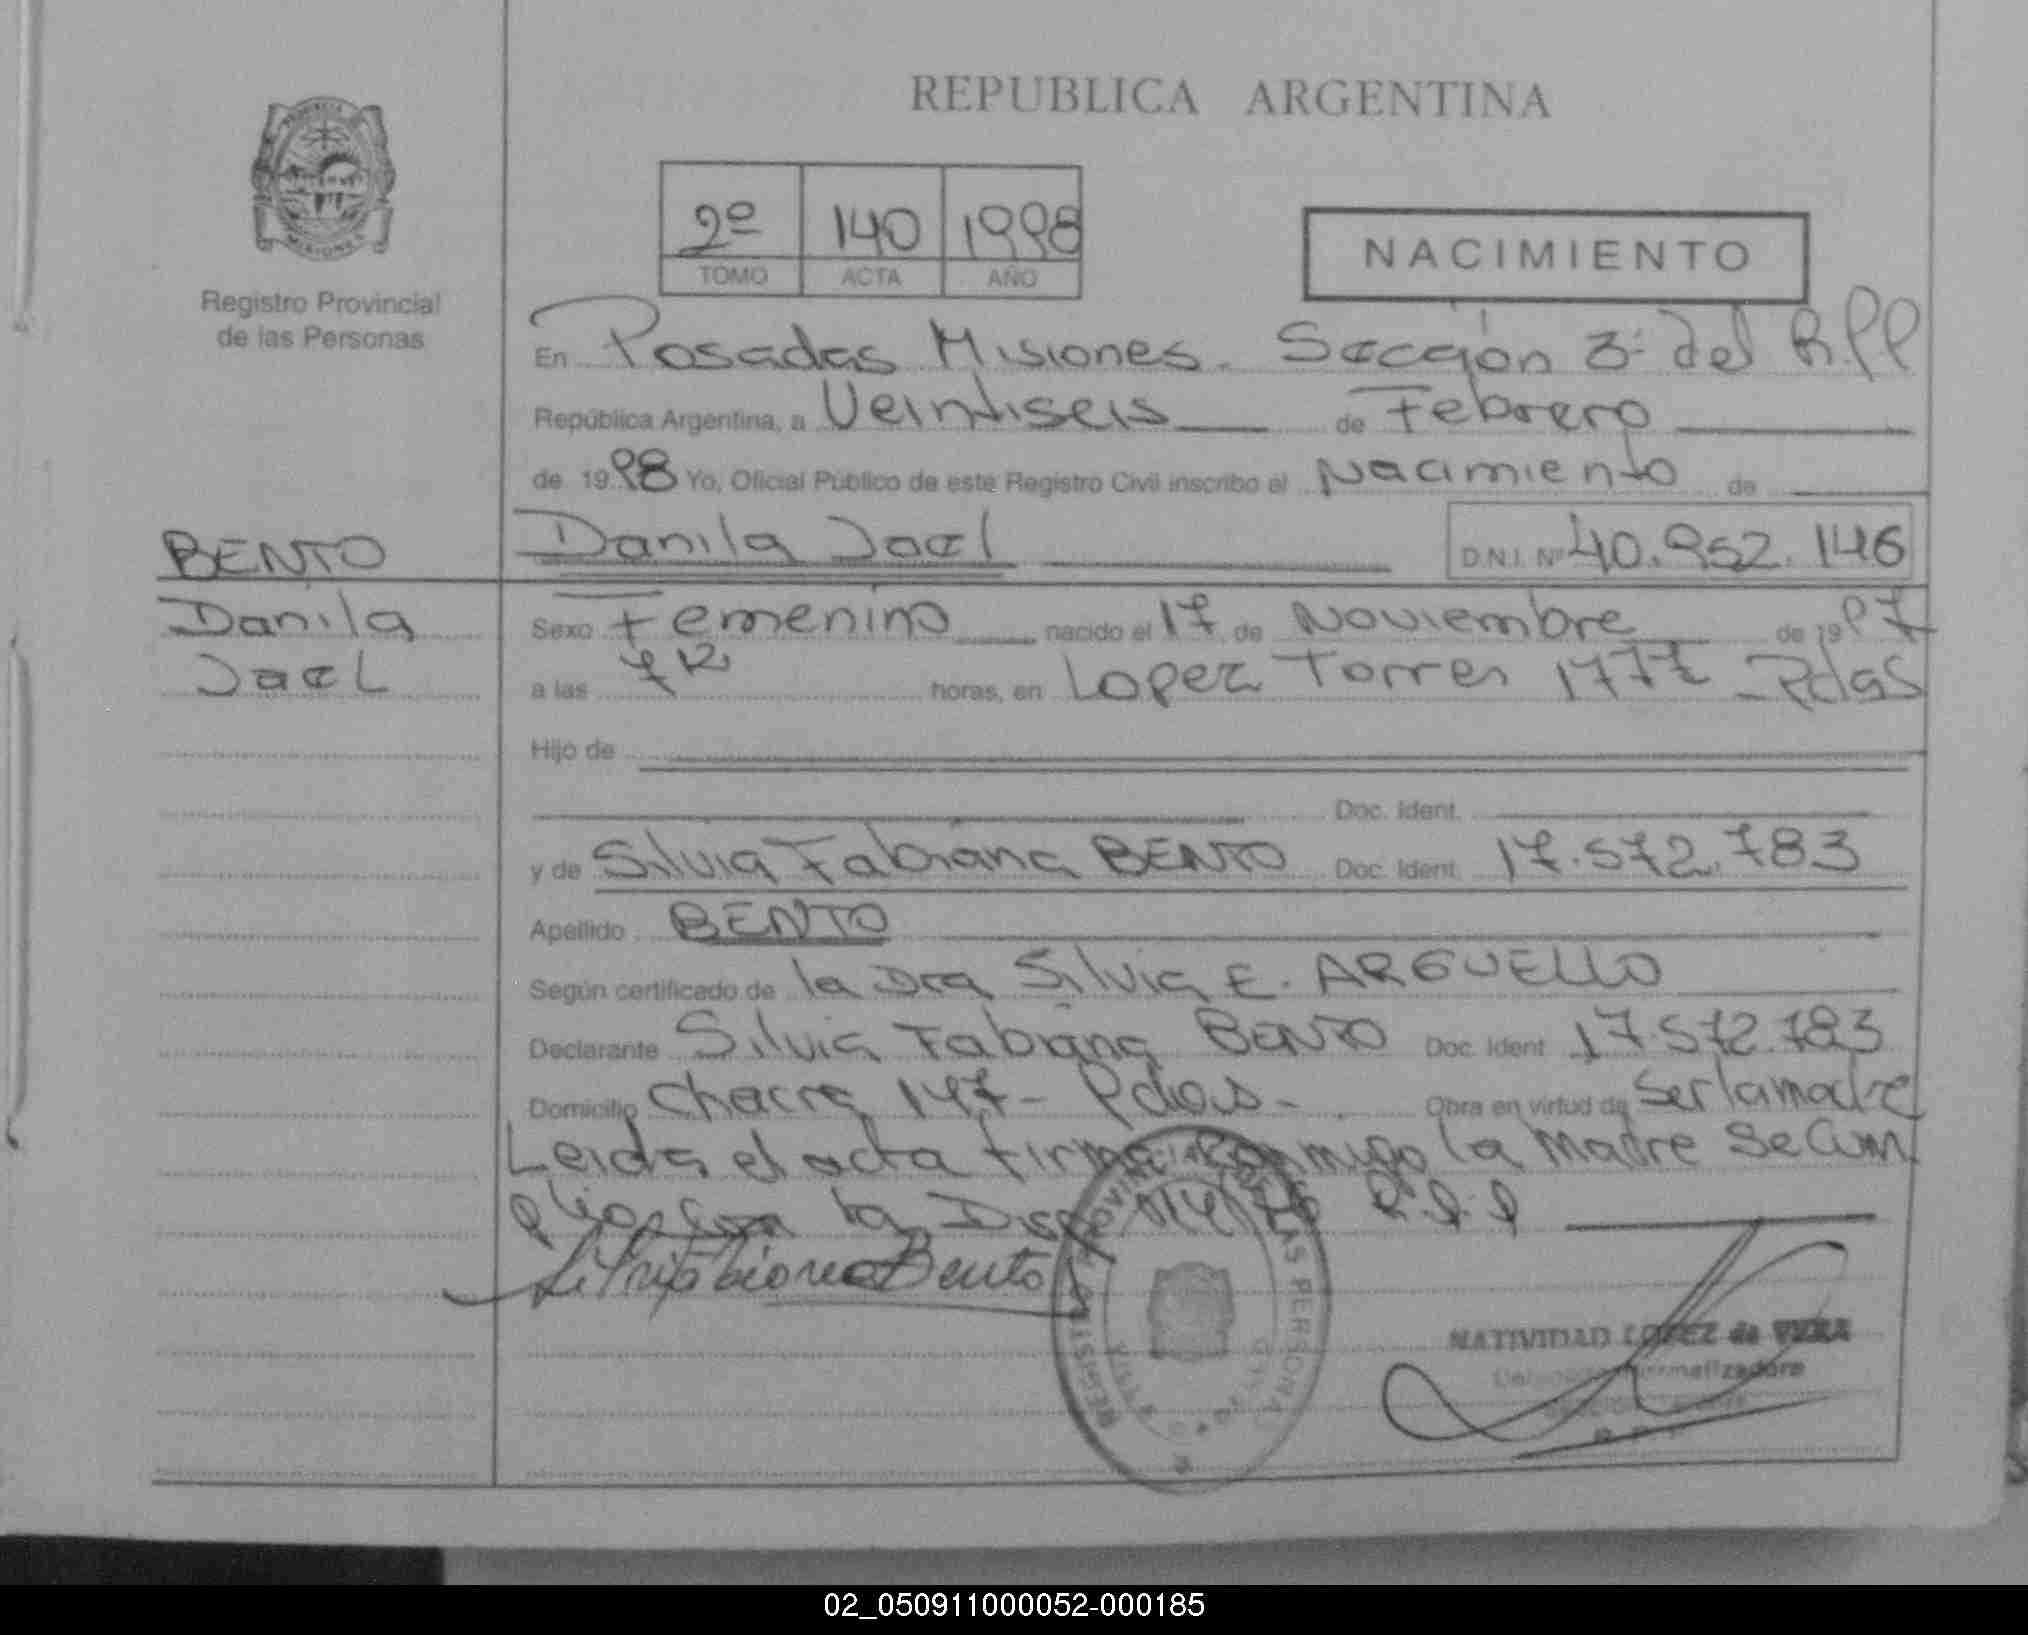 REPUBLICA ARGENTINA
PROVINCIA
MISIONES
Registro Provincial
de las Personas
2º 140 1998
TOMO ACTA AÑO
NACIMIENTO
En Posadas Misiones. Sección 3ª del R.P.P
República Argentina, a Veintiseis de Febrero
de 1998 Yo, Oficial Público de este Registro Civil inscribo el Nacimiento de
BENTO
Danila Jael D.N.I. Nº 40.952.146
Danila
Jael
Sexo Femenino nacido el 17 de Noviembre de 1997
a las horas, en Lopez Torres 1777 - Pdas
Hijo de
Doc. Ident.
y de Silvia Fabiana BENTO Doc. Ident. 17.572.783
Apellido BENTO
Según certificado de la Dra Silvia E. ARGUELLO
Declarante Silvia Fabiana BENTO Doc. Ident 17.572.783
Domicilio Chacra 147 - Pdas - Obra en virtud de Ser la madre
Leida el acta firma conmigo la madre Se Cum
plio con la Disp R.P.P
Bento
LAS PERSONAS
NATIVIDAD LOPEZ de VERA
Normalizadora
R P P
02_050911000052-000185